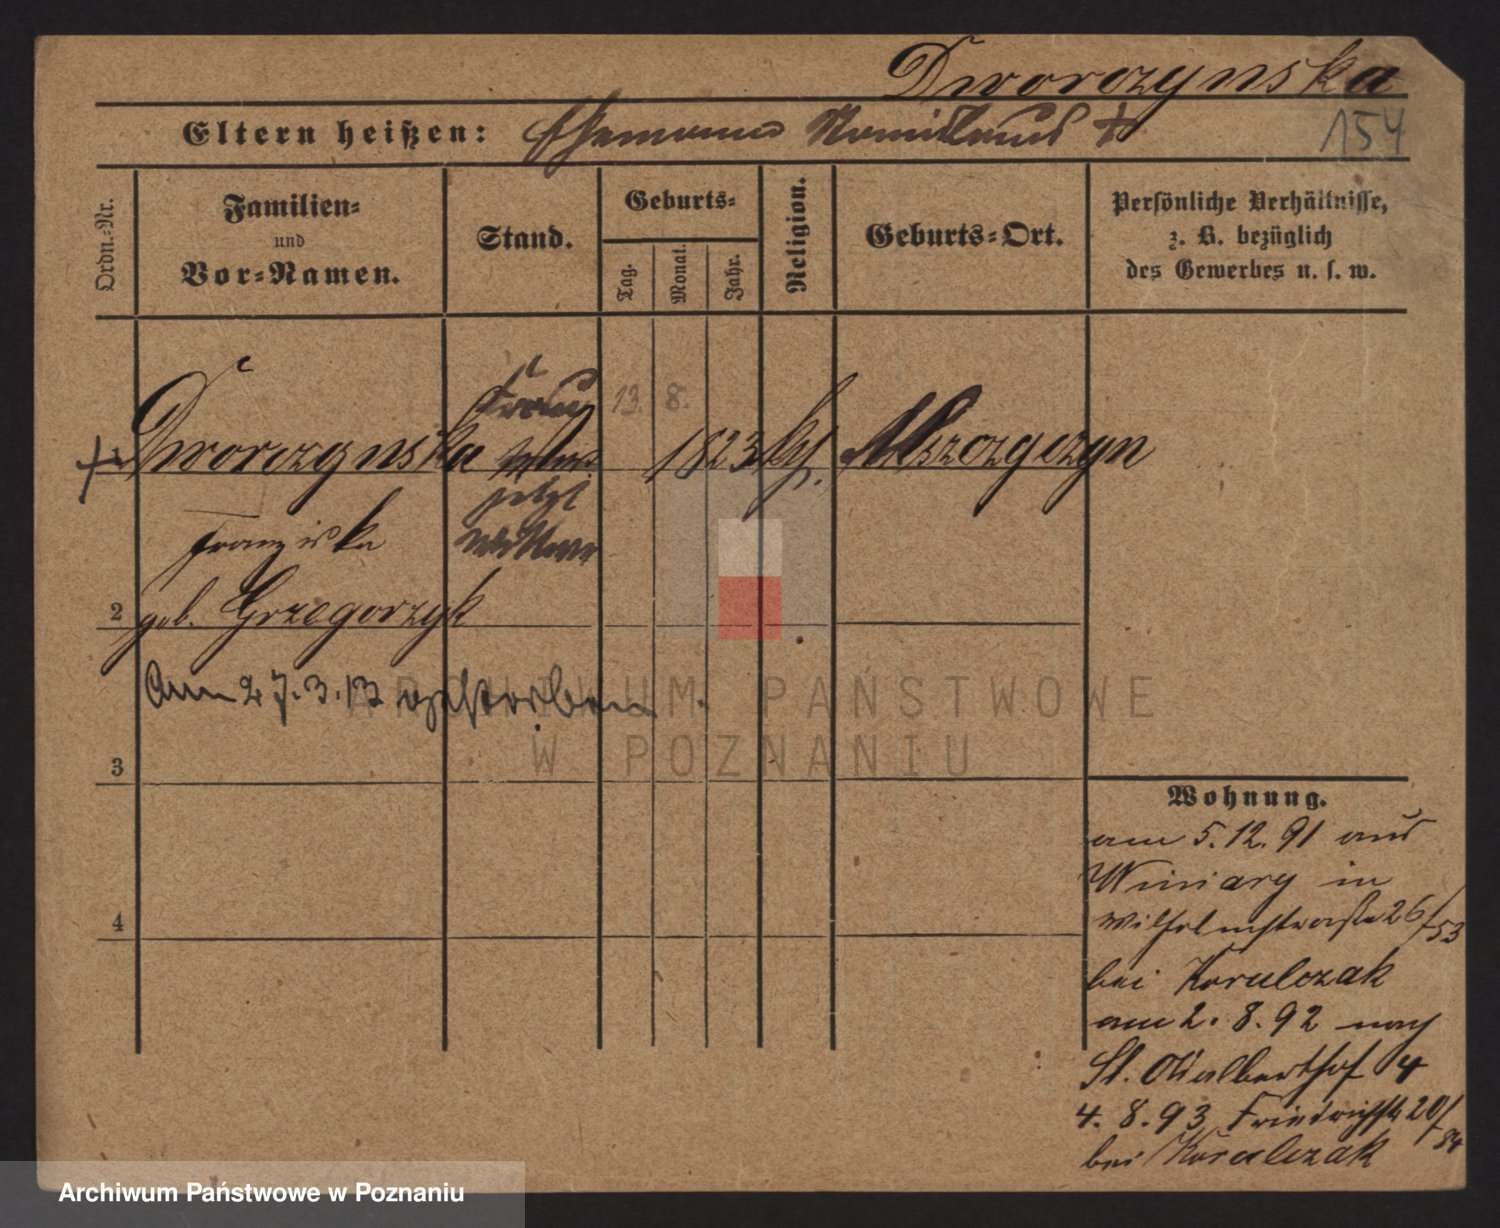 Dworczynska
Eltern heißen: Ehemann Stanislaus +
154
Ordn.-Nr.
Familien-
und
Vor-Namen.
Stand.
Geburts-
Tag.
Monat.
Jahr.
Religion.
Geburts-Ort.
Persönliche Verhältnisse,
z. B. bezüglich
des Gewerbes u. s. w.
Frau
13. 8.
+ Dworczynska 1823 kth. Mszczyczyn
jetzt
Franziska Wittwe
2 geb. Grzegorzyk
Am 27.3.13 gestorben.
ARCHIWUM PAŃSTWOWE
W POZNANIU
3
Wohnung.
am 5.12.91 aus
Winiary in
Wilhelmstraße 26/53
bei Koralczak
am 2.8.92 nach
St. Adalberthof 4
4.8.93 Friedrichstr 20/84
bei Koralczak
4
Archiwum Państwowe w Poznaniu